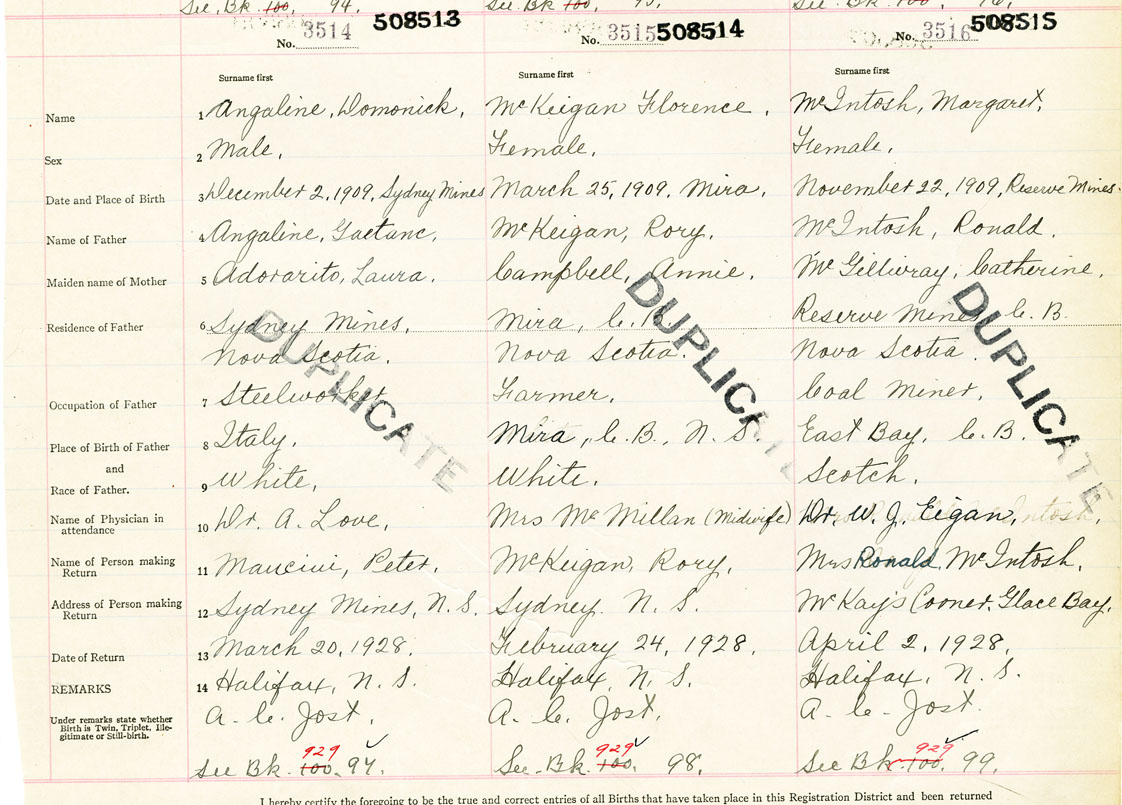 See Bk. 100 94. See Bk 100, 95. See Bk. 100, 96,
No. 3514 508513 No. 3515 508514 No. 3516 508515
Surname first Surname first Surname first
Name 1 Angaline, Domonick, McKeigan Florence, McIntosh, Margaret,
Sex 2 Male, Female, Female.
Date and Place of Birth 3 December 2, 1909, Sydney Mines March 25, 1909, Mira, November 22, 1909, Reserve Mines.
Name of Father 4 Angaline, Gaetanc, McKeigan, Rory, McIntosh, Ronald.
Maiden name of Mother 5 Adorarito, Laura. Campbell, Annie, McGillivray, Catherine,
Residence of Father 6 Sydney Mines, Mira, C. B. Reserve Mines C. B.
Nova Scotia. Nova Scotia. Nova Scotia.
DUPLICATE DUPLICATE DUPLICATE
Occupation of Father 7 Steelworker Farmer, Coal Miner,
Place of Birth of Father 8 Italy, Mira, C. B., N. S. East Bay, C. B.
and
Race of Father. 9 White, White. Scotch.
Name of Physician in attendance 10 Dr. A. Love, Mrs McMillan (Midwife) Dr. W. J. Eigan,
Name of Person making Return 11 Mancini, Peter. McKeigan, Rory, Mrs Ronald McIntosh,
Address of Person making Return 12 Sydney Mines, N. S. Sydney. N. S. McKay's Corner. Glace Bay,
Date of Return 13 March 20, 1928. February 24, 1928, April 2, 1928,
REMARKS 14 Halifax, N. S. Halifax, N. S. Halifax, N. S.
Under remarks state whether Birth is Twin, Triplet, Illegitimate or Still-birth. A. C. Jost, A. C. Jost, A. C. Jost.
929 929 929
See Bk. 100, 97, See Bk. 100, 98, See Bk. 100, 99,
I hereby certify the foregoing to be the true and correct entries of all Births that have taken place in this Registration District and been returned